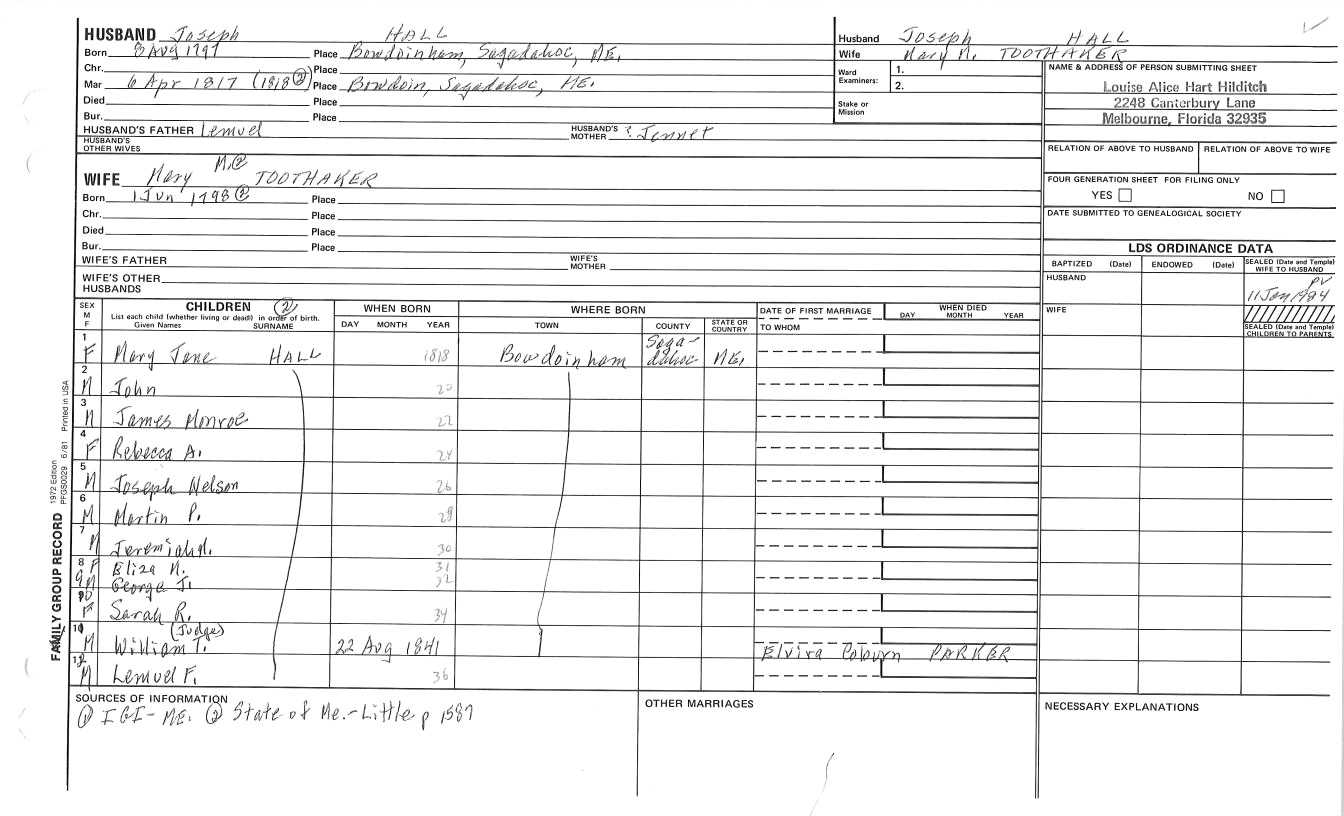 HUSBAND Joseph HALL
Born 8 Aug 1797 Place Bowdoinham, Sagadahoc, ME.
Chr. Place
Mar 6 Apr 1817 (1818 ②) Place Bowdoin, Sagadahoc, ME.
Died Place
Bur. Place
HUSBAND'S FATHER Lemuel HUSBAND'S MOTHER ? Jennet
HUSBAND'S OTHER WIVES
Husband Joseph HALL
Wife Mary M. TOOTHAKER
Ward Examiners: 1.
2.
Stake or Mission
NAME & ADDRESS OF PERSON SUBMITTING SHEET
Louise Alice Hart Hilditch
2248 Canterbury Lane
Melbourne, Florida 32935
RELATION OF ABOVE TO HUSBAND RELATION OF ABOVE TO WIFE
FOUR GENERATION SHEET FOR FILING ONLY
YES NO
DATE SUBMITTED TO GENEALOGICAL SOCIETY
M. ②
WIFE Mary TOOTHAKER
Born 1 Jun 1798 ② Place
Chr. Place
Died Place
Bur. Place
WIFE'S FATHER WIFE'S MOTHER
WIFE'S OTHER HUSBANDS
LDS ORDINANCE DATA
BAPTIZED (Date) ENDOWED (Date) SEALED (Date and Temple) WIFE TO HUSBAND
HUSBAND PV
11 Jan 1984
WIFE
SEALED (Date and Temple) CHILDREN TO PARENTS
SEX M F CHILDREN ② WHEN BORN WHERE BORN DATE OF FIRST MARRIAGE WHEN DIED
List each child (whether living or dead) in order of birth. DAY MONTH YEAR
Given Names SURNAME DAY MONTH YEAR TOWN COUNTY STATE OR COUNTRY TO WHOM
1 F Mary Jane HALL 1818 Bowdoinham Sagadahoc ME.
2 M John 20
3 M James Monroe 22
4 F Rebecca A. 24
5 M Joseph Nelson 26
6 M Martin P. 28
7 M Jeremiah 30
8 F Eliza N. 31
9 M George J. 32
10 F Sarah R. 34
11 M William T. (Judge) 22 Aug 1841 Elvira Coburn PARKER
12 M Lemuel F. 36
SOURCES OF INFORMATION
① IGI-ME. ② State of Me.-Little p 1587
OTHER MARRIAGES
NECESSARY EXPLANATIONS
FAMILY GROUP RECORD 1972 Edition PFGS0029 6/81 Printed in USA